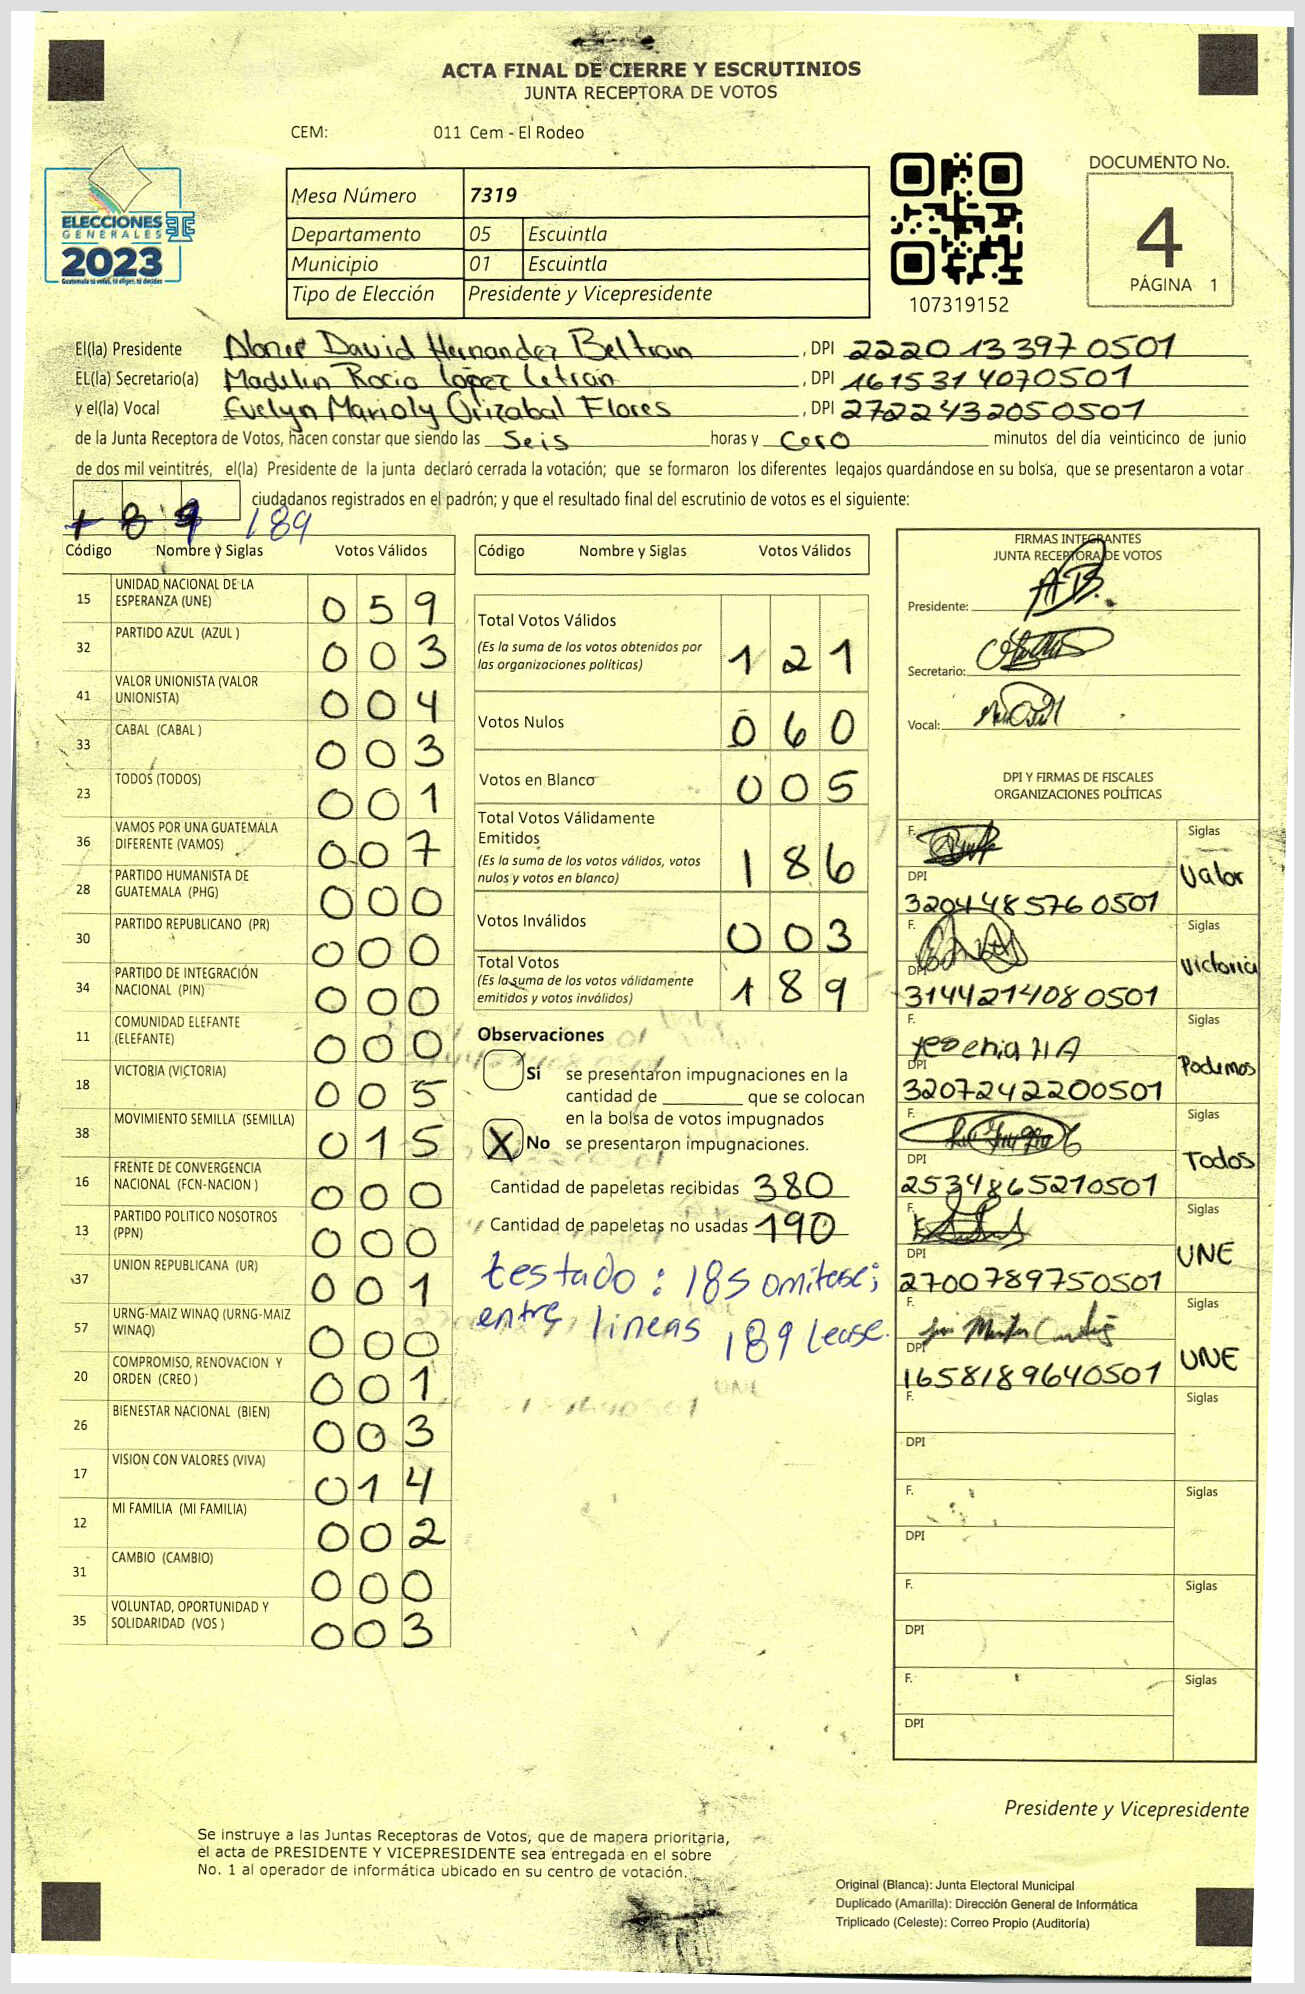 ACTA FINAL DE CIERRE Y ESCRUTINIOS
JUNTA RECEPTORA DE VOTOS
CEM: 011 Cem - El Rodeo
ELECCIONES
GENERALES
2023
Mesa Número 7319
Departamento 05 Escuintla
Municipio 01 Escuintla
Tipo de Elección Presidente y Vicepresidente
107319152
DOCUMENTO No.
4
PÁGINA 1
El(la) Presidente David Hernandez Beltran, DPI 2220133970501
EL(la) Secretario(a) Madelin Rocio López Letran, DPI 1615314070501
y el(la) Vocal Evelyn Marioly Orizabal Flores, DPI 2722432050501
de la Junta Receptora de Votos, hacen constar que siendo las Seis horas y Cero minutos del día veinticinco de junio
de dos mil veintitrés, el(la) Presidente de la junta declaró cerrada la votación; que se formaron los diferentes legajos guardándose en su bolsa, que se presentaron a votar
189 ciudadanos registrados en el padrón; y que el resultado final del escrutinio de votos es el siguiente:
Código Nombre y Siglas Votos Válidos
15 UNIDAD NACIONAL DE LA ESPERANZA (UNE) 059
32 PARTIDO AZUL (AZUL ) 003
41 VALOR UNIONISTA (VALOR UNIONISTA) 004
33 CABAL (CABAL ) 003
23 TODOS (TODOS) 001
36 VAMOS POR UNA GUATEMALA DIFERENTE (VAMOS) 007
28 PARTIDO HUMANISTA DE GUATEMALA (PHG) 000
30 PARTIDO REPUBLICANO (PR) 000
34 PARTIDO DE INTEGRACIÓN NACIONAL (PIN) 000
11 COMUNIDAD ELEFANTE (ELEFANTE) 000
18 VICTORIA (VICTORIA) 005
38 MOVIMIENTO SEMILLA (SEMILLA) 015
16 FRENTE DE CONVERGENCIA NACIONAL (FCN-NACION ) 000
13 PARTIDO POLITICO NOSOTROS (PPN) 000
37 UNION REPUBLICANA (UR) 001
57 URNG-MAIZ WINAQ (URNG-MAIZ WINAQ) 000
20 COMPROMISO, RENOVACION Y ORDEN (CREO ) 001
26 BIENESTAR NACIONAL (BIEN) 003
17 VISION CON VALORES (VIVA) 014
12 MI FAMILIA (MI FAMILIA) 002
31 CAMBIO (CAMBIO) 000
35 VOLUNTAD, OPORTUNIDAD Y SOLIDARIDAD (VOS ) 003
Código Nombre y Siglas Votos Válidos
Total Votos Válidos 121
(Es la suma de los votos obtenidos por
las organizaciones políticas)
Votos Nulos 060
Votos en Blanco 005
Total Votos Válidamente
Emitidos 186
(Es la suma de los votos válidos, votos
nulos y votos en blanco)
Votos Inválidos 003
Total Votos 189
(Es la suma de los votos válidamente
emitidos y votos inválidos)
Observaciones
Sí se presentaron impugnaciones en la
cantidad de ________ que se colocan
en la bolsa de votos impugnados
X No se presentaron impugnaciones.
Cantidad de papeletas recibidas 380
Cantidad de papeletas no usadas 190
testado: 185 omitase;
entre lineas 189 Lease.
FIRMAS INTEGRANTES
JUNTA RECEPTORA DE VOTOS
Presidente:
Secretario:
Vocal:
DPI Y FIRMAS DE FISCALES
ORGANIZACIONES POLÍTICAS
F. Siglas
DPI Valor
3204485760501
F. Siglas
DPI Victoria
3144214080501
F. Siglas
Yesenia
DPI Podemos
3207242200501
F. Siglas
DPI Todos
2534865210501
F. Siglas
DPI UNE
2700789750501
F. Siglas
DPI UNE
1658189640501
F. Siglas
DPI
F. Siglas
DPI
F. Siglas
DPI
F. Siglas
DPI
Presidente y Vicepresidente
Se instruye a las Juntas Receptoras de Votos, que de manera prioritaria,
el acta de PRESIDENTE Y VICEPRESIDENTE sea entregada en el sobre
No. 1 al operador de informática ubicado en su centro de votación.
Original (Blanca): Junta Electoral Municipal
Duplicado (Amarilla): Dirección General de Informática
Triplicado (Celeste): Correo Propio (Auditoría)